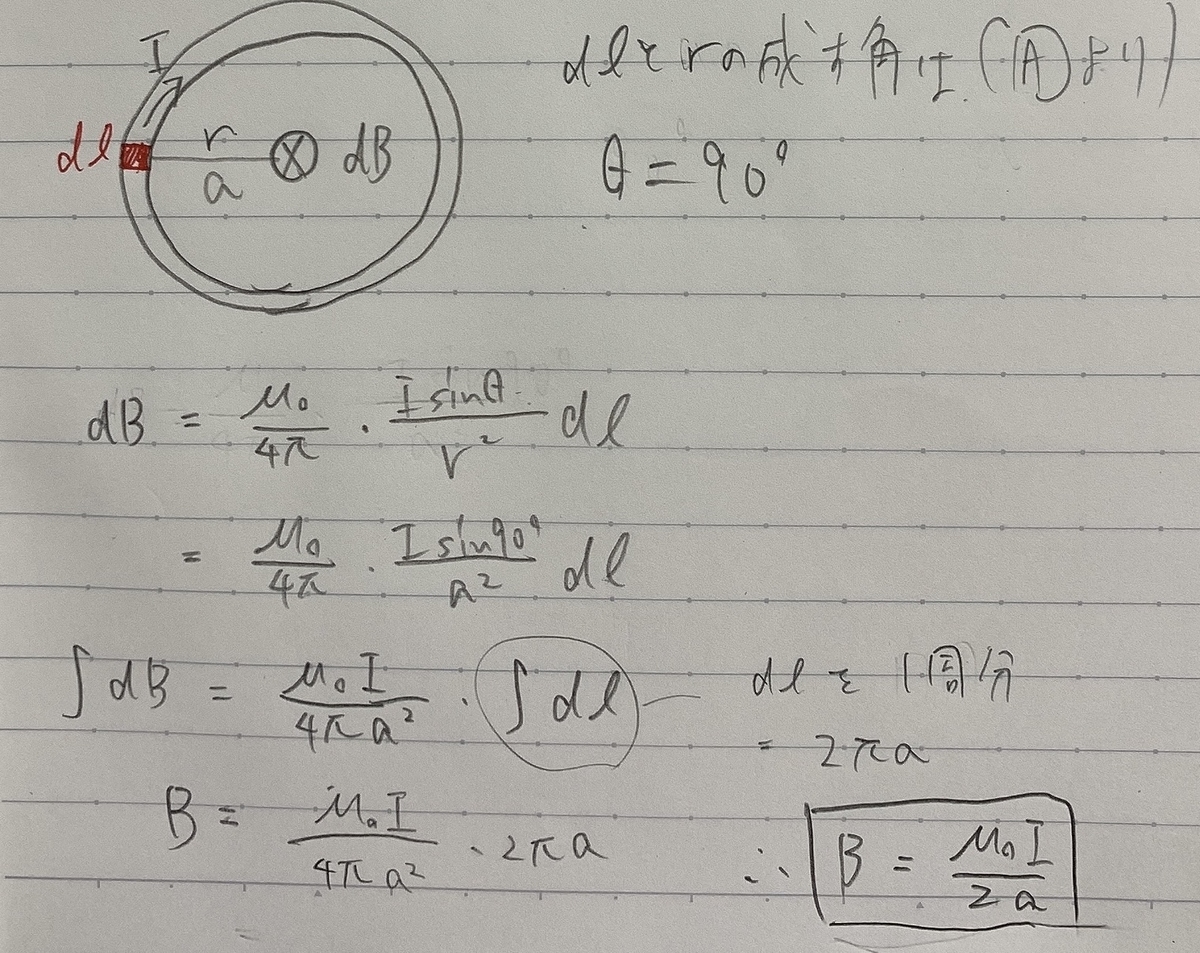 I
dl r a dB
dlとrの成す角は(Ⓐより)
θ = 90°
dB = μ₀/4π · I sinθ/r² dl
= μ₀/4π · I sin90°/a² dl
∫dB = μ₀I/4πa² · ∫dl — dlを1周分
= 2πa
B = μ₀I/4πa² · 2πa
∴ B = μ₀I/2a